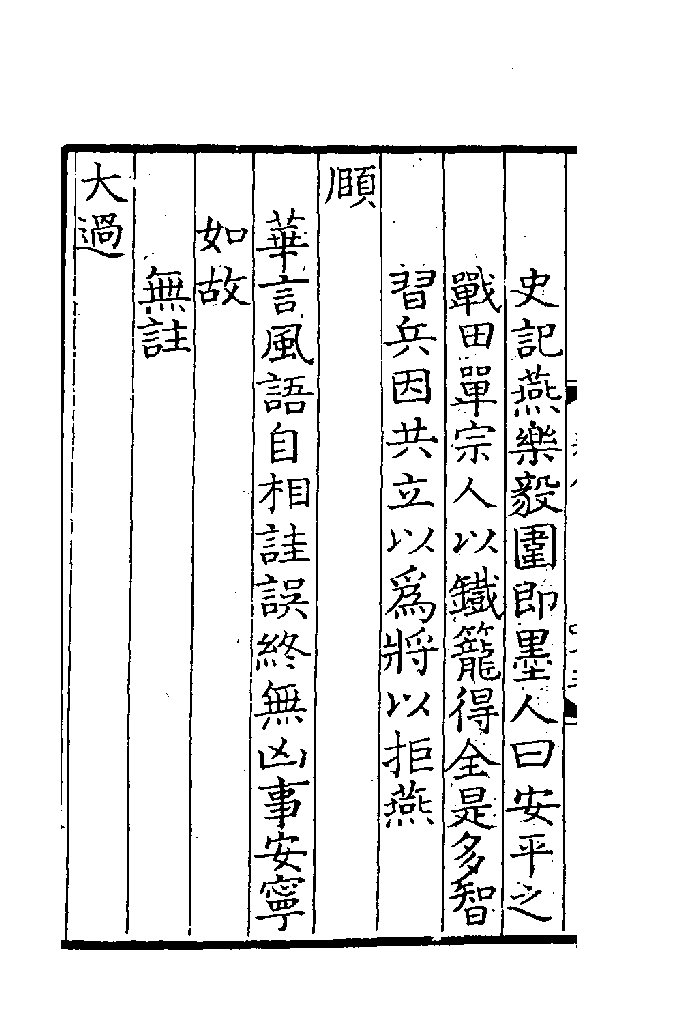 史記燕樂毅圍即墨人曰安平之
戰田單宗人以鐵籠得全是多智
習兵因共立以為將以拒燕
頤
華言風語自相詿誤終無凶事安寧
如故
無註
大過